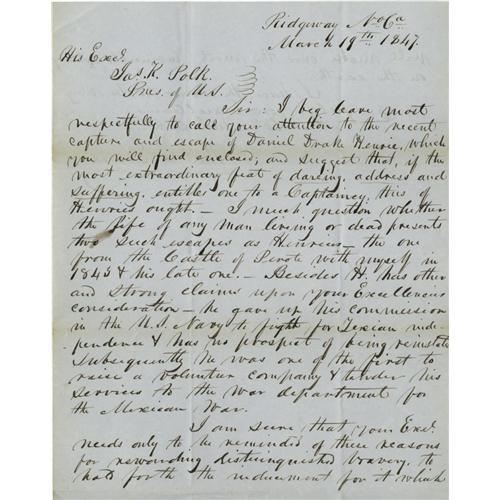 Ridgeway No Ca
March 19th 1847.
His Excy.
Jas. K. Polk.
Pres. of U.S.
Sir: I beg leave most
respectfully to call your attention to the recent
capture and escape of Daniel Drake Henrie, which
you will find enclosed; and suggest that, if the
most extraordinary feat of daring, address and
suffering, entitles one to a Captaincy, this of
Henries ought. — I much question whether
the life of any man living or dead presents
two such escapes as Henries — the one
from the Castle of Perote with myself in
1843 & his late one. — Besides H. has other
and strong claims upon your Excellencies
consideration — he gave up his commission
in the U.S. Navy to fight for Texian inde-
pendence & has no prospect of being reinstate
Subsequently he was one of the first to
raise a volunteer company & tender his
services to the war department for
the Mexican War.
I am sure that your Excy.
needs only to be reminded of these reasons
for rewarding distinguished bravery, to
hold forth the inducement for it which